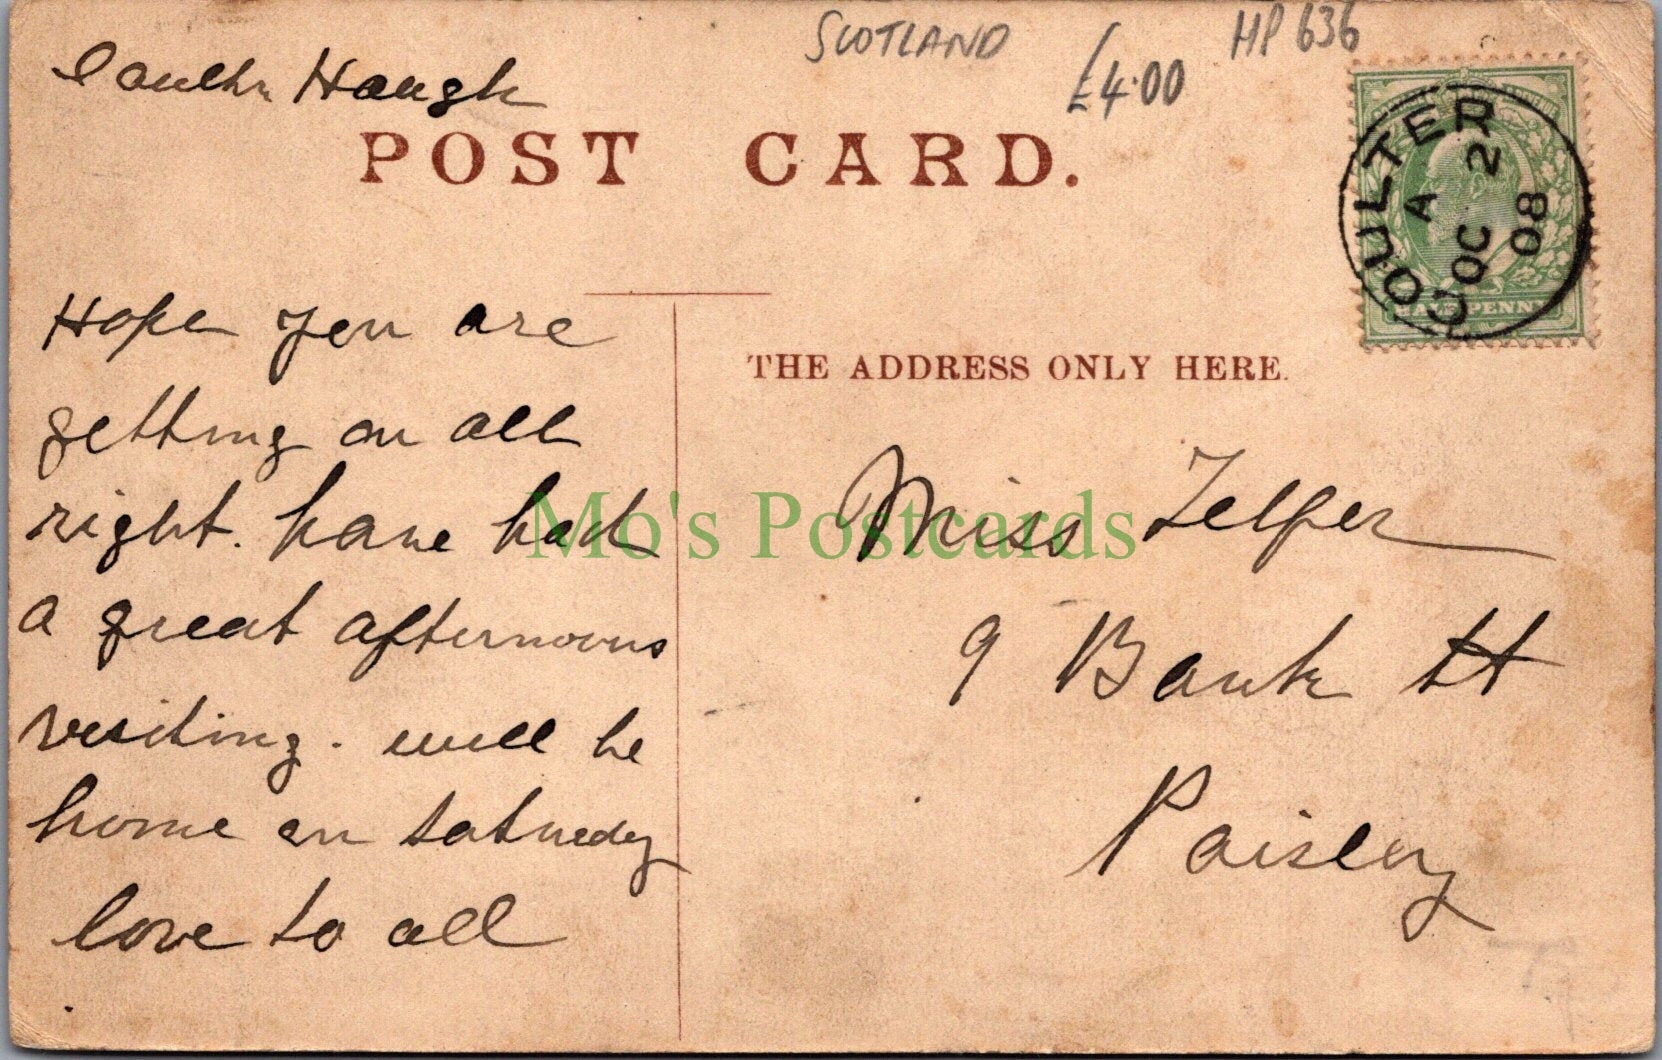 SCOTLAND
£4.00
HP 636
Haugh
POST CARD.
COULTER
A
OC 2
08
HALFPENNY
Hope you are
getting on all
right. have had
a great afternoons
visiting. will be
home on Saturday
love to all
THE ADDRESS ONLY HERE.
Miss Telfer
9 Bank St
Paisley
Mo's Postcards